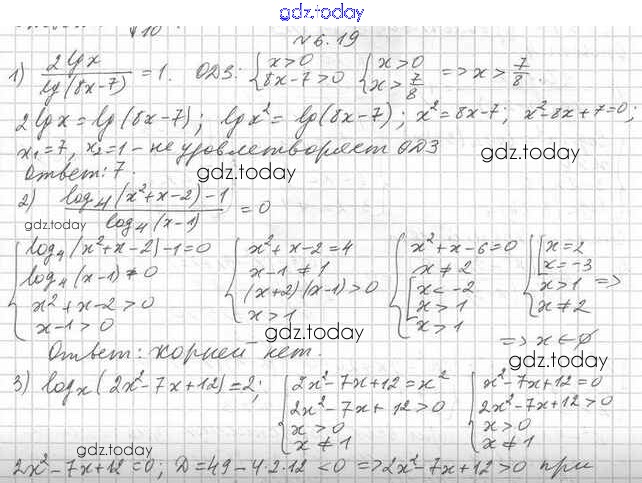 gdz.today
№ 6.19
1) 2lg x / lg(8x-7) = 1. ОДЗ: { x>0 8x-7>0 { x>0 x>7/8 => x>7/8.
2lg x = lg(8x-7); lg x² = lg(8x-7); x² = 8x-7; x²-8x+7=0;
x₁=7, x₂=1 - не удовлетворяет ОДЗ
gdz.today
Ответ: 7.
gdz.today
2) log₄(x²+x-2)-1 / log₄(x-1) = 0
gdz.today
{ log₄(x²+x-2)-1=0 log₄(x-1)≠0 x²+x-2>0 x-1>0 { x²+x-2=4 x-1≠1 (x+2)(x-1)>0 x>1 { x²+x-6=0 x≠2 [ x<-2 x>1 x>1 { [ x=2 x=-3 x>1 x≠2 =>
gdz.today
=> x∈∅
Ответ: корней нет.
gdz.today
3) logₓ(2x²-7x+12)=2; { 2x²-7x+12=x² 2x²-7x+12>0 x>0 x≠1 { x²-7x+12=0 2x²-7x+12>0 x>0 x≠1
gdz.today
gdz.today
2x²-7x+12=0; D=49-4·2·12<0 => 2x²-7x+12>0 при